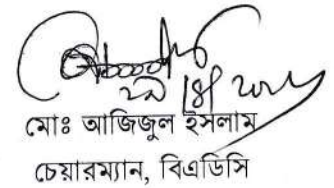 মোঃ আজিজুল ইসলাম
চেয়ারম্যান, বিএডিসি